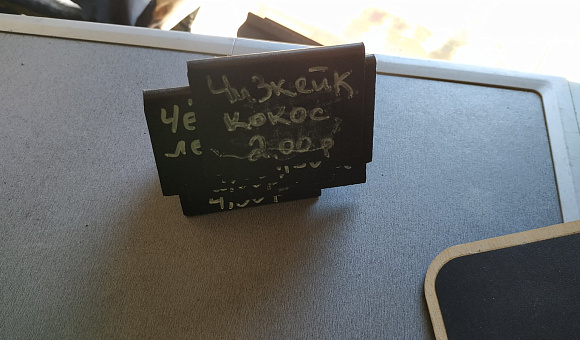 Чизкейк
кокос,
2.00р
чё
ле
4,00р